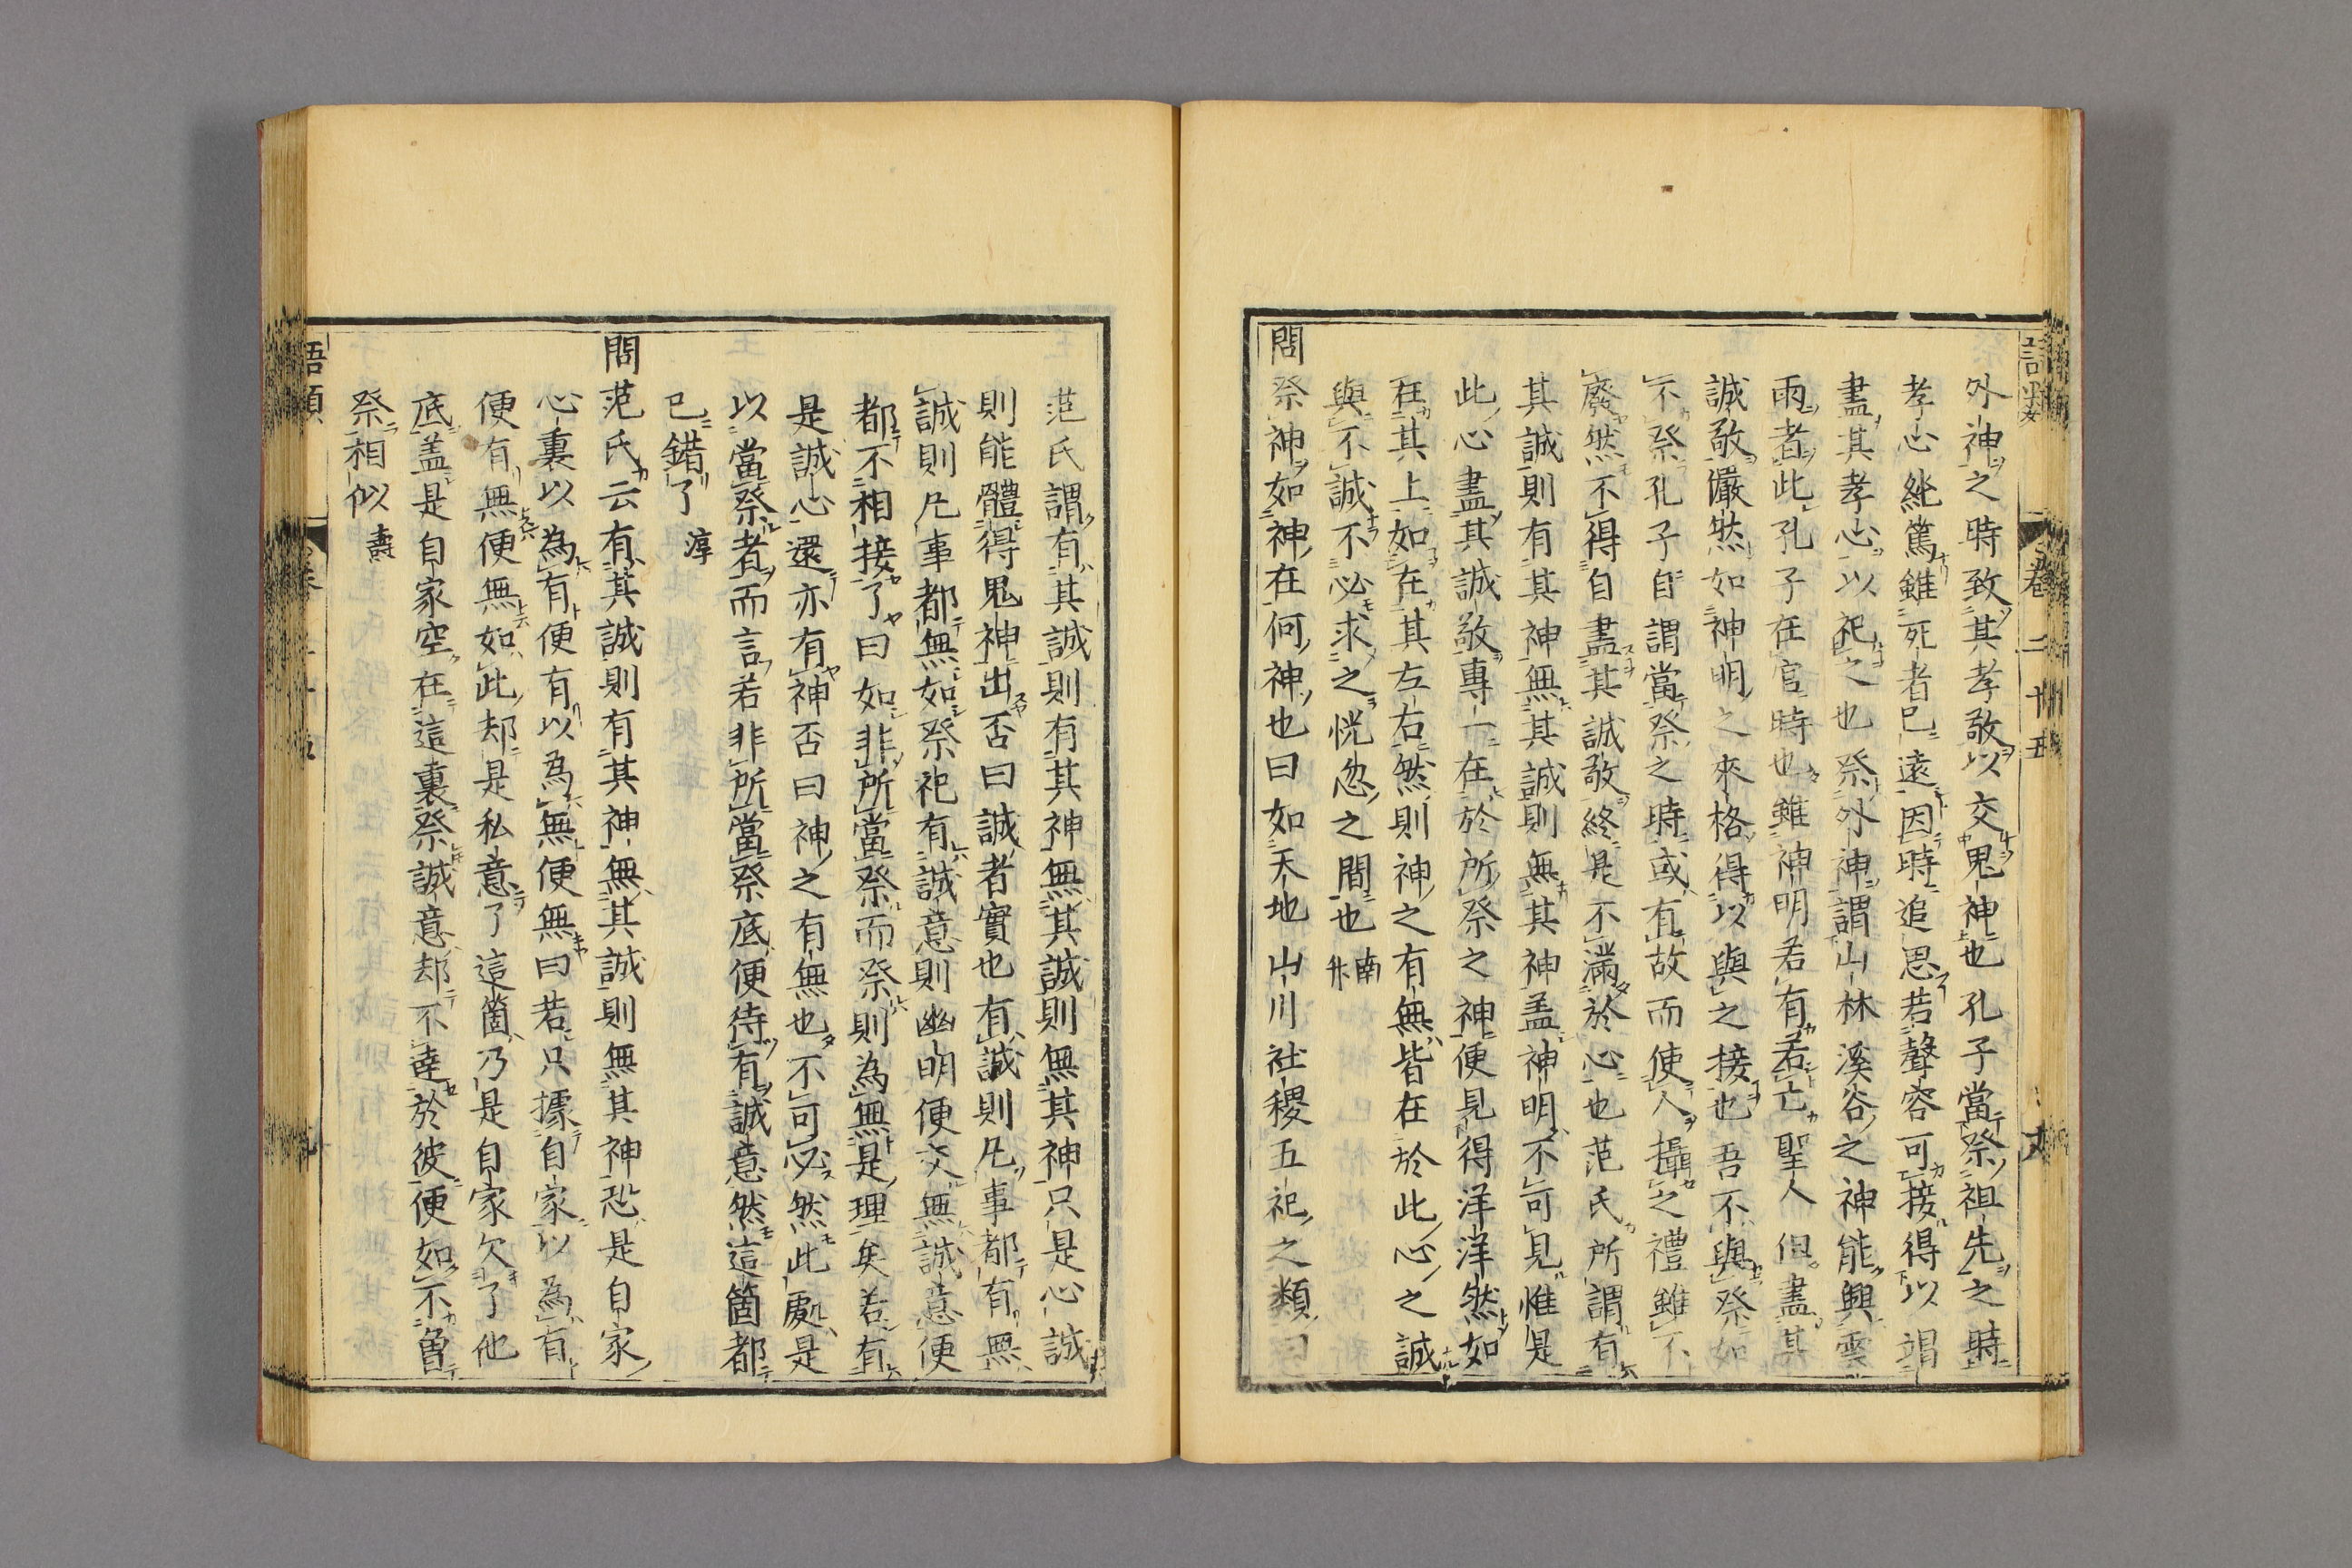 語類 卷二十五
外神之時致其孝敬以交鬼神也孔子當祭祖先之時
孝心純篤雖死者已遠因時追思若聲容可接得以竭
盡其孝心以祀之也祭外神謂山林溪谷之神能興雲
雨者此孔子在官時也雖神明若有若亡聖人但盡其
誠敬儼然如神明之來格得以與之接也吾不與祭如
不祭孔子自謂當祭之時或有故而使人攝之禮雖不
廢然不得自盡其誠敬終是不滿於心也范氏所謂有
其誠則有其神無其誠則無其神盖神明不可見惟是
此心盡其誠敬專一在於所祭之神便見得洋洋然如
在其上如在其左右然則神之有無皆在於此心之誠
與不誠不必求之恍忽之間也 南升
問祭神如神在何神也曰如天地山川社稷五祀之類曰
范氏謂有其誠則有其神無其誠則無其神只是心誠
則能體得鬼神出否曰誠者實也有誠則凡事都有無
誠則凡事都無如祭祀有誠意則幽明便交無誠意便
都不相接了曰如非所當祭而祭則為無是理矣若有
是誠心還亦有神否曰神之有無也不可必然此處是
以當祭者而言若非所當祭底便待有誠意然這箇都
已錯了 淳
問范氏云有其誠則有其神無其誠則無其神恐是自家
心裏以為有便有以為無便無曰若只據自家以為有
便有無便無如此却是私意了這箇乃是自家欠了他
底盖是自家空在這裏祭誠意却不達於彼便如不曾
祭相似 壽
語類